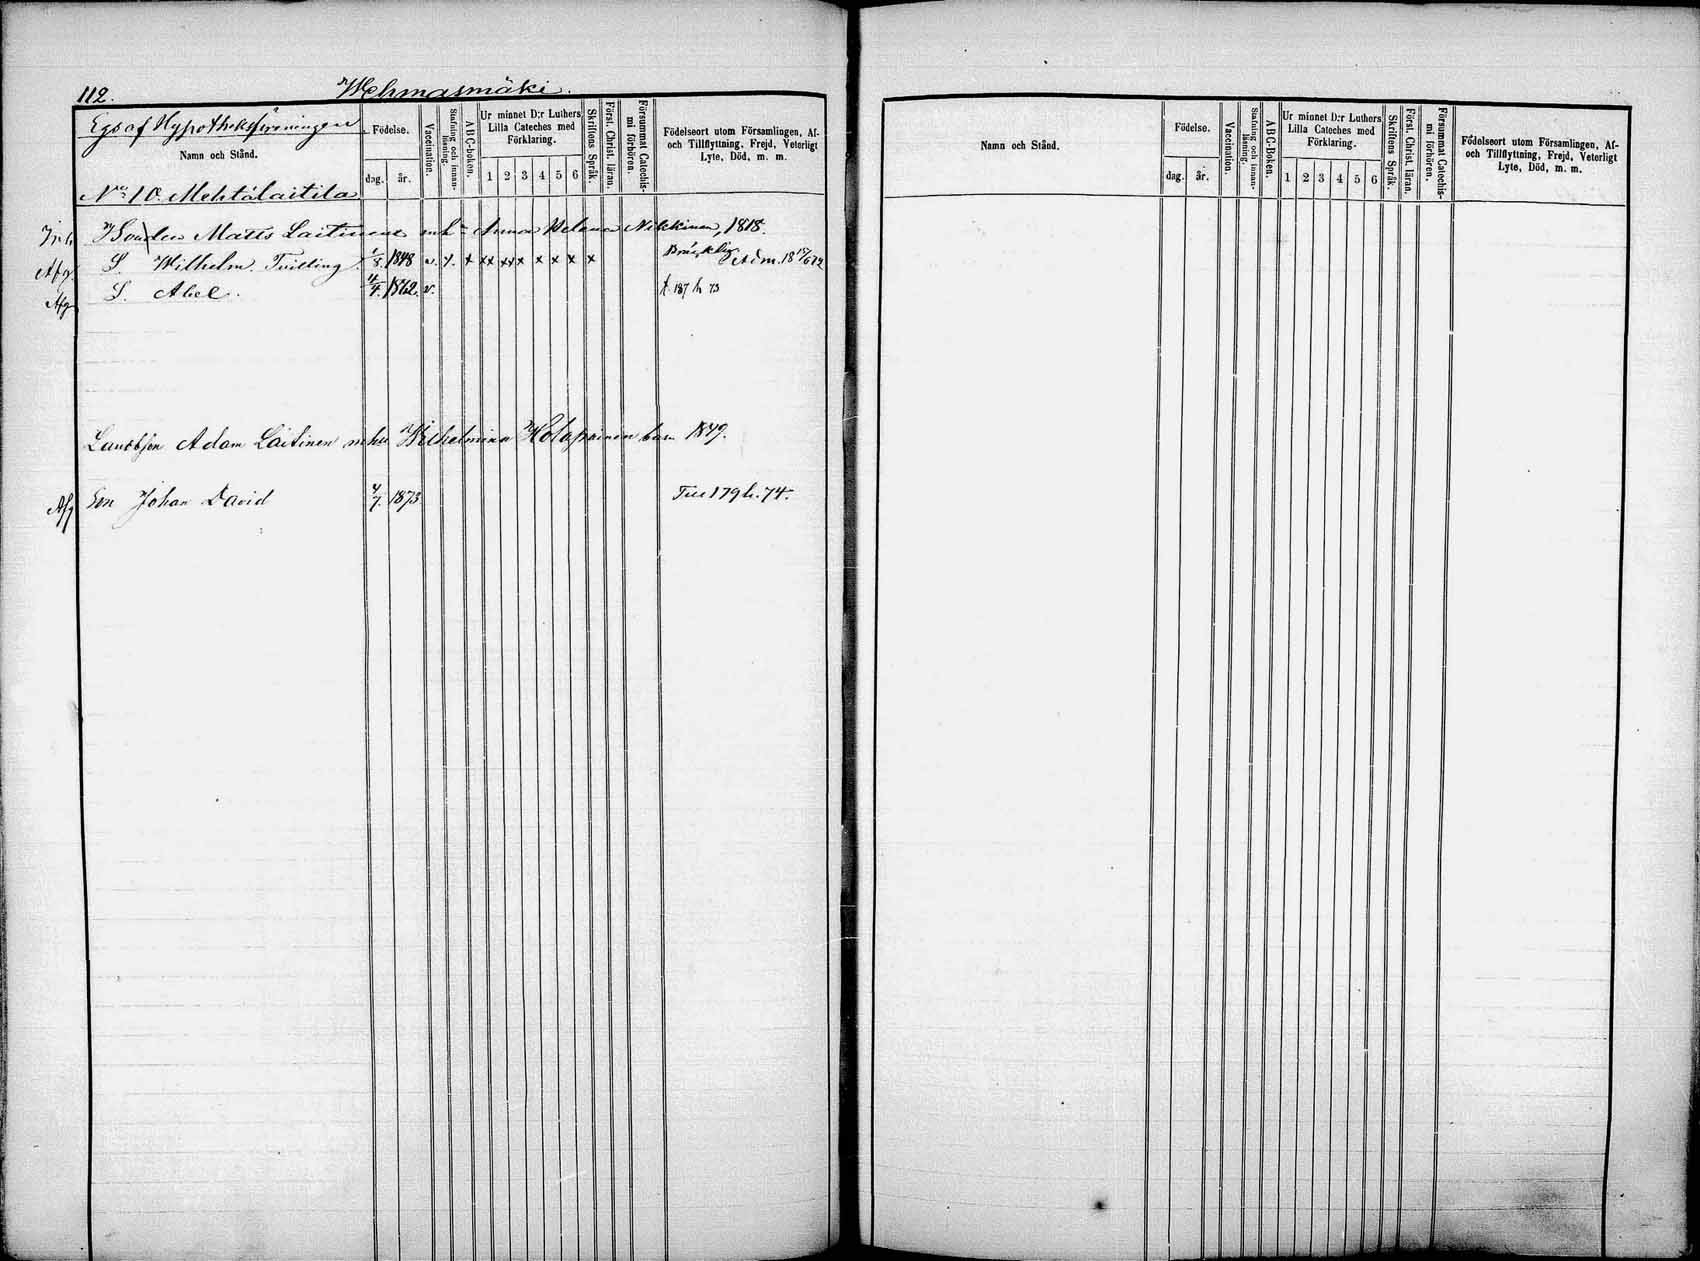 112. Wehmasmäki.
Egs af Hypotheksföreningen
Namn och Stånd.
Födelse.
dag. år.
Vaccination.
Stafning och innanläsning.
ABC-boken.
Ur minnet D:r Luthers Lilla Cateches med Förklaring.
1 2 3 4 5 6
Skriftens Språk.
Först. Christ. läran.
Försummat Catechismi förhören.
Födelseort utom Församlingen, Af- och Tillflyttning, Frejd, Veterligt Lyte, Död, m. m.
No 10. Mehtälaitila
Inh Bonden Matts Laitinens mh Anna Helena Nikkinen, 1818.
Afg. S. Wilhelm. Tvilling. 1/8. 1848 v. x x xx xx x x x x x
Afg S. Abel. 4/4. 1862. v. f. 187 h 73
Landbn Adam Laitinen mhu Wilhelmina Holopainen barn 1849.
Afg Son Johan David 4/7. 1873 Till 179 h. 74.
Namn och Stånd.
Födelse.
dag. år.
Vaccination.
Stafning och innanläsning.
ABC-Boken.
Ur minnet D:r Luthers Lilla Cateches med Förklaring.
1 2 3 4 5 6
Skriftens Språk.
Först. Christ. läran.
Försummat Catechismi förhören.
Födelseort utom Församlingen, Af- och Tillflyttning, Frejd, Veterligt Lyte, Död, m. m.